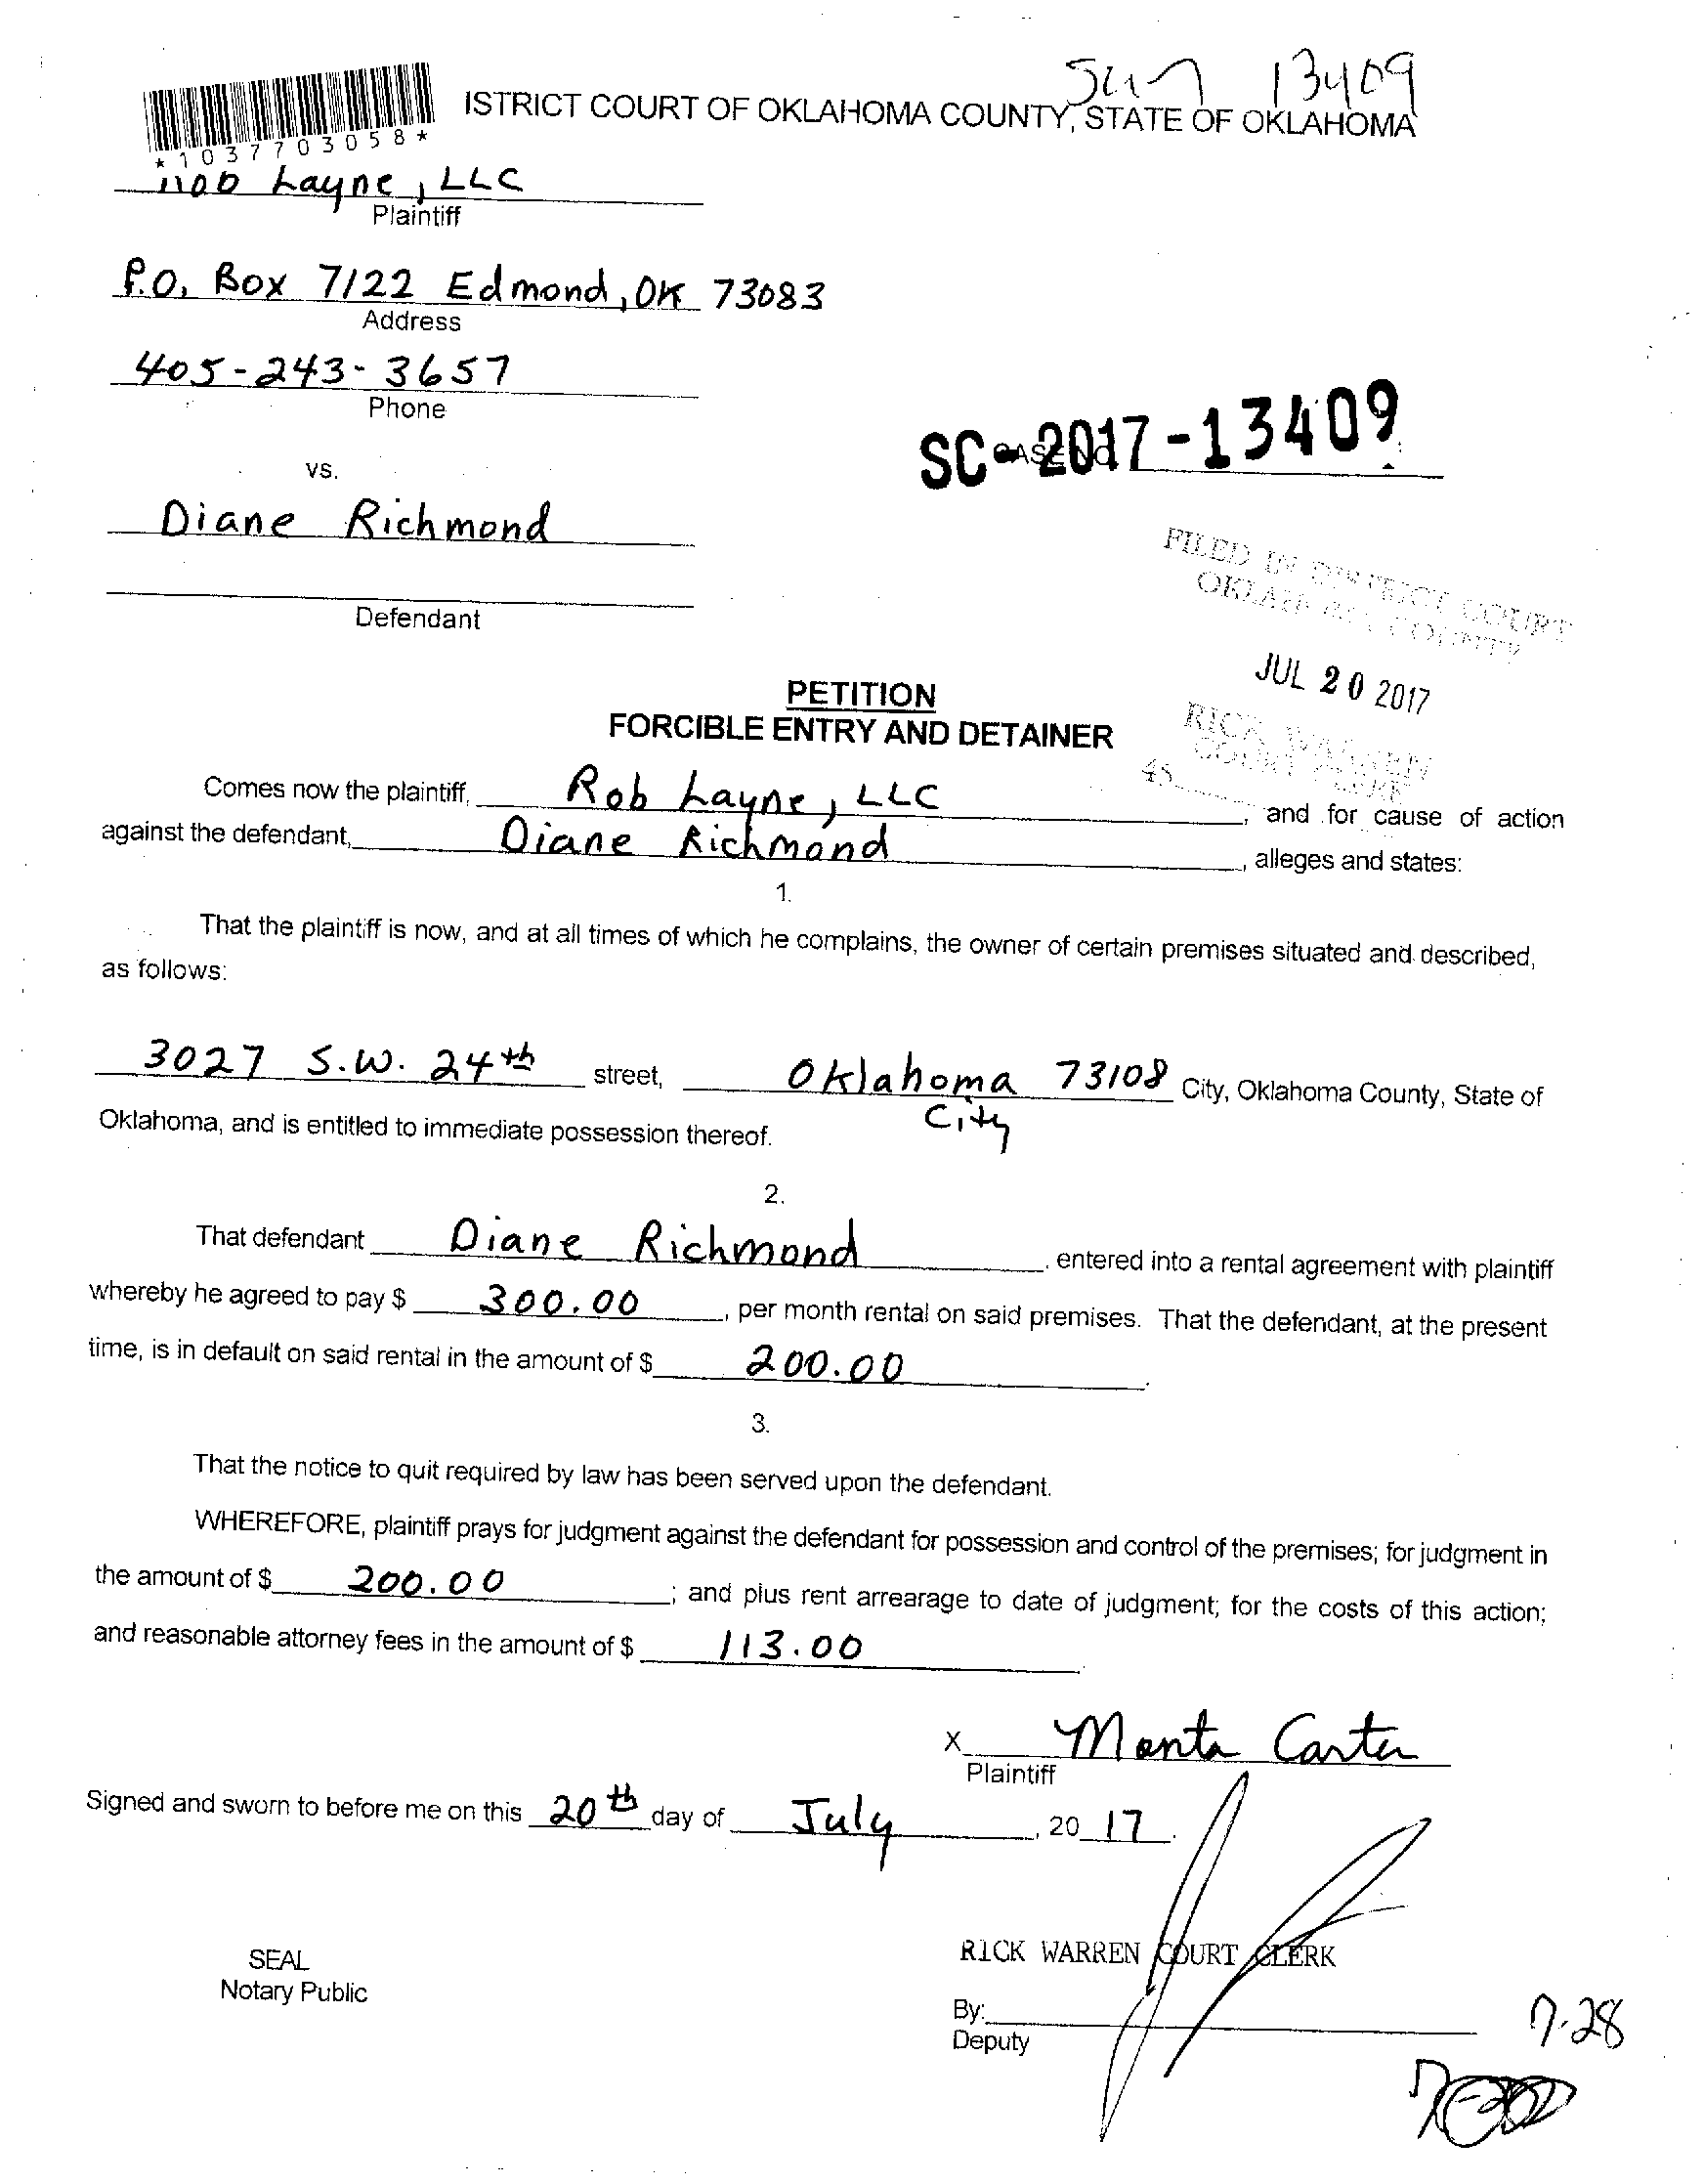 13409
ISTRICT COURT OF OKLAHOMA COUNTY, STATE OF OKLAHOMA
*1037703058*
Layne, LLC
Plaintiff
P.O. Box 7122 Edmond, OK 73083
Address
405-243-3657
Phone
SC-2017-13409
CASE NO.
vs.
Diane Richmond
Defendant
FILED IN DISTRICT COURT
OKLAHOMA COUNTY
JUL 20 2017
PETITION
FORCIBLE ENTRY AND DETAINER
RICK WARREN
COURT CLERK
45
Comes now the plaintiff, Rob Layne, LLC, and for cause of action
against the defendant, Diane Richmond, alleges and states:
1.
That the plaintiff is now, and at all times of which he complains, the owner of certain premises situated and described,
as follows:
3027 S.W. 24th street, Oklahoma 73108 City, Oklahoma County, State of
City
Oklahoma, and is entitled to immediate possession thereof.
2.
That defendant Diane Richmond, entered into a rental agreement with plaintiff
whereby he agreed to pay $ 300.00, per month rental on said premises. That the defendant, at the present
time, is in default on said rental in the amount of $ 200.00.
3.
That the notice to quit required by law has been served upon the defendant.
WHEREFORE, plaintiff prays for judgment against the defendant for possession and control of the premises; for judgment in
the amount of $ 200.00; and plus rent arrearage to date of judgment; for the costs of this action;
and reasonable attorney fees in the amount of $ 113.00
X Monta Carter
Plaintiff
Signed and sworn to before me on this 20th day of July, 20 17.
RICK WARREN COURT CLERK
SEAL
Notary Public
By:
Deputy
7-28